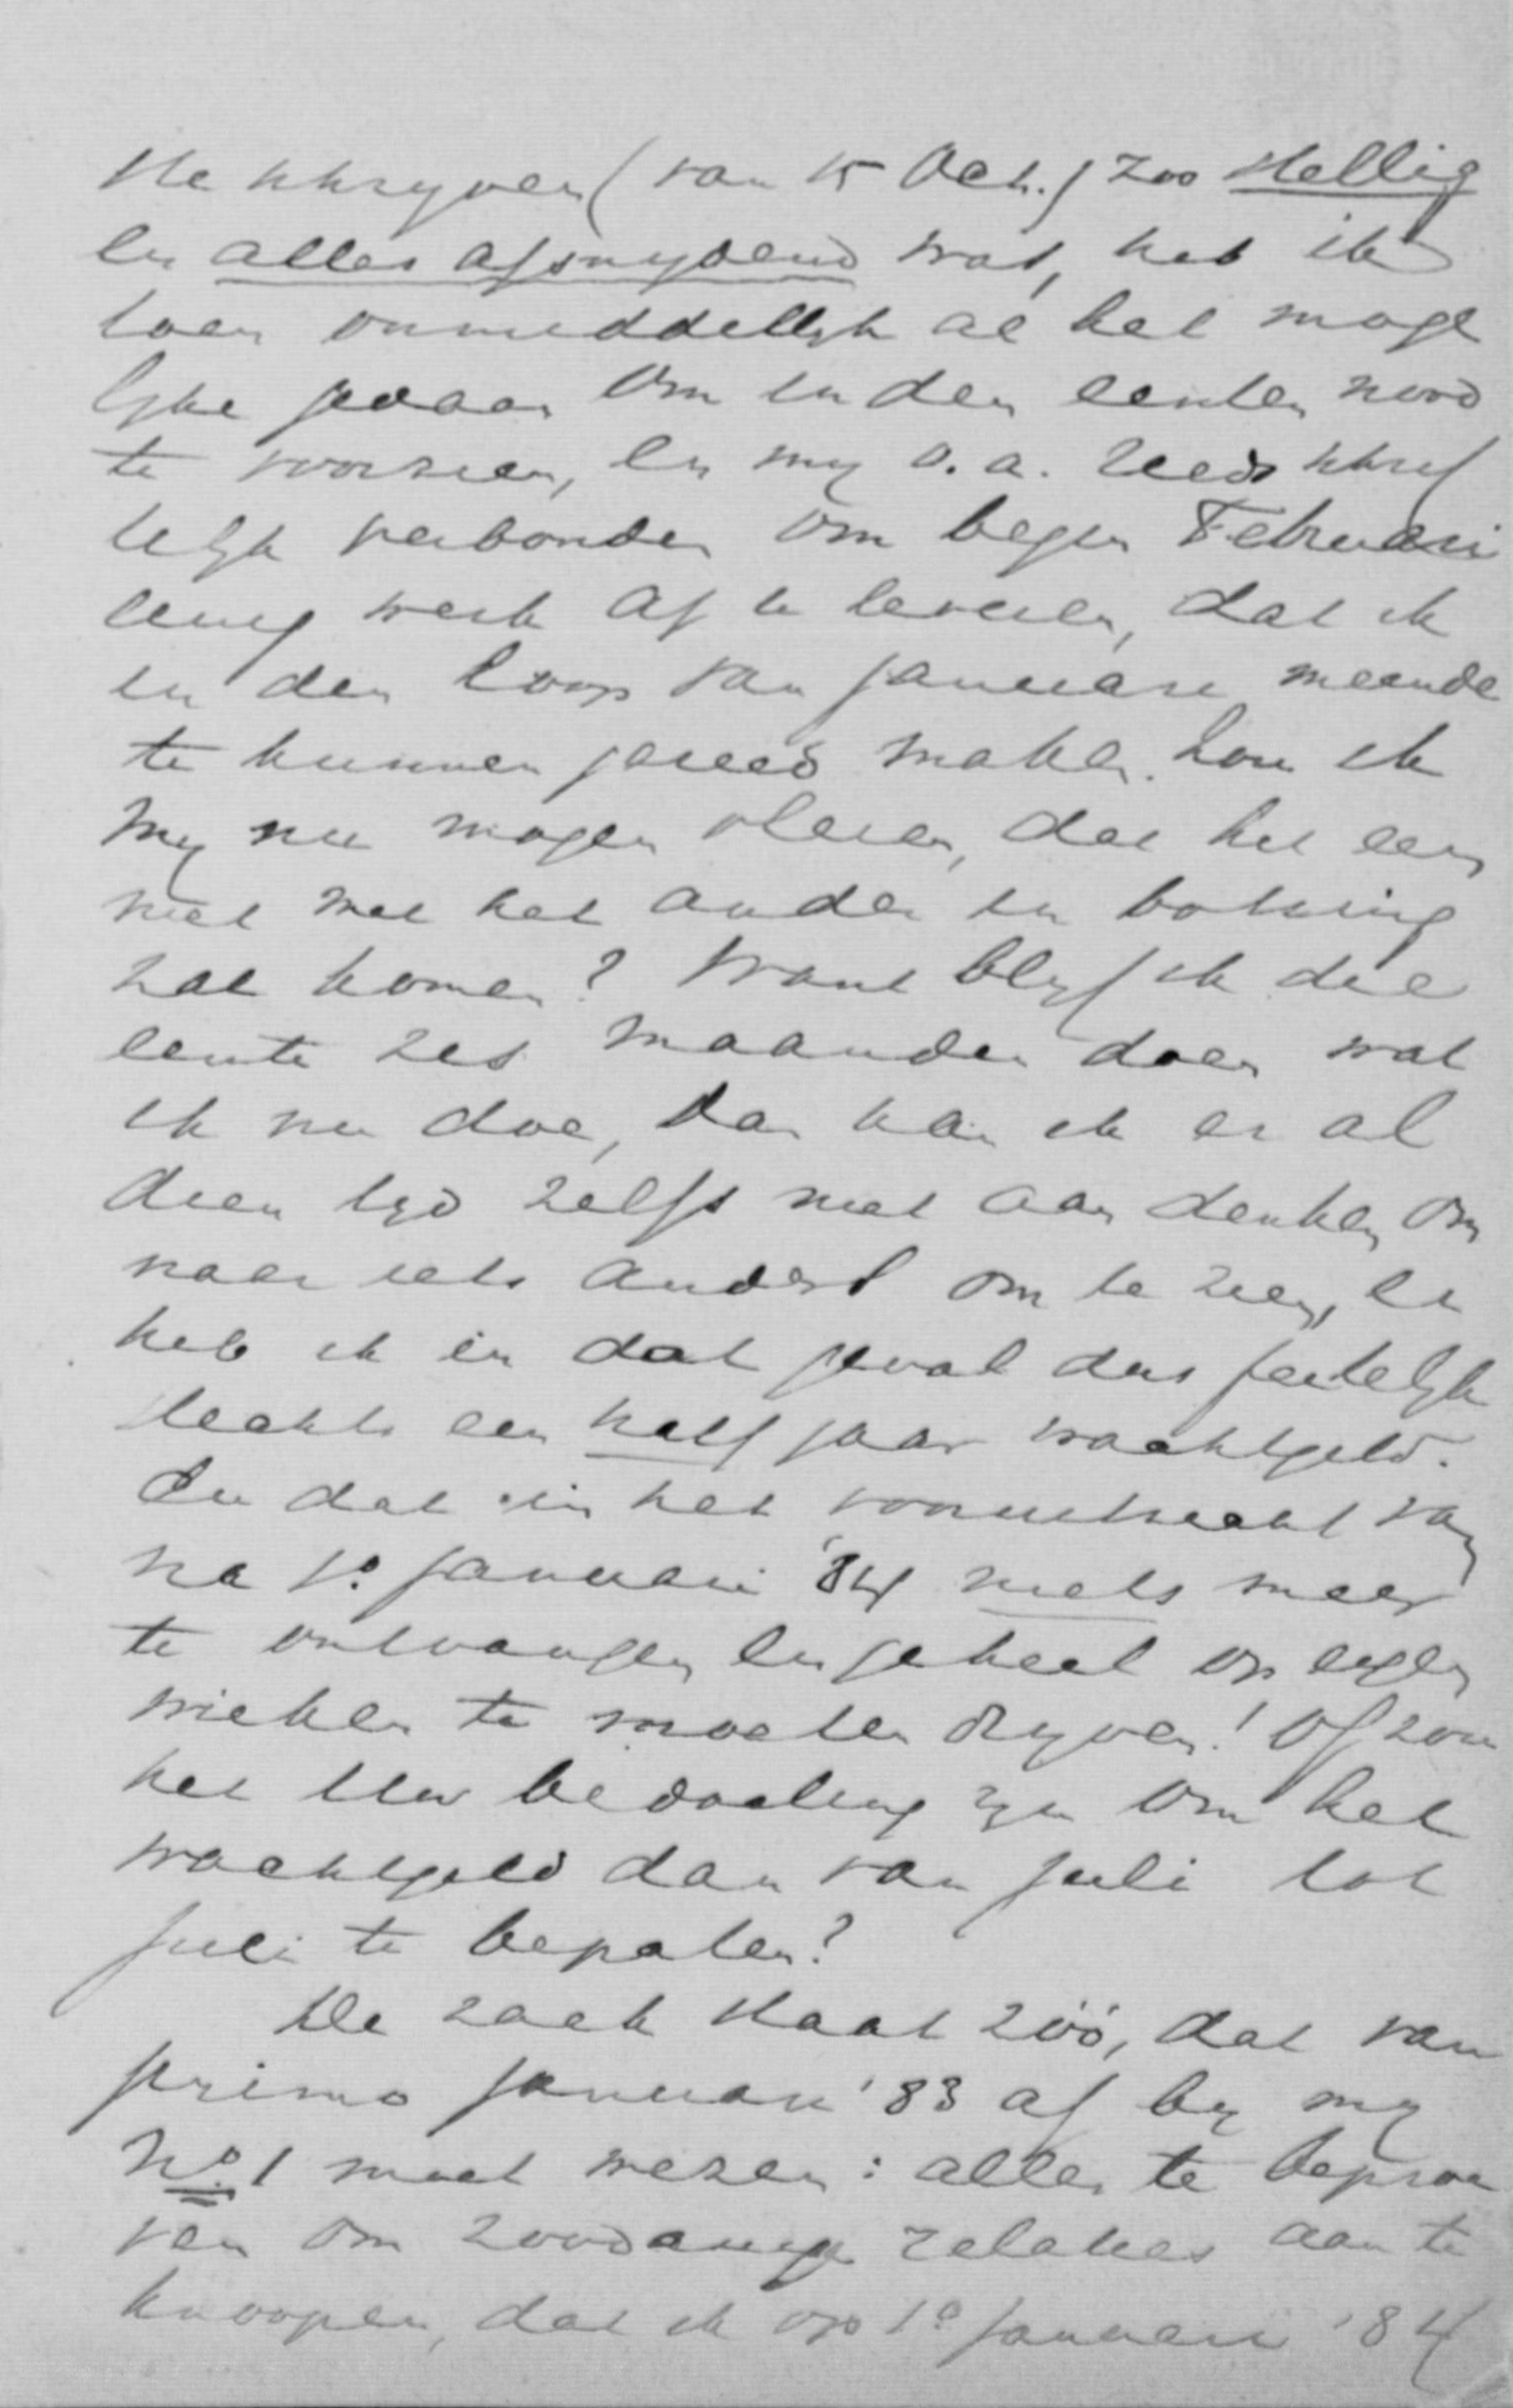 schryven (van 15 Oct.) zoo stellig
en alles afsnydend was, heb ik
toen onmiddellyk al het moge
lyke gedaan om in den eersten nood
te voorzien, en my o.a. reeds schrif
telyk verbonden om begin Februari
eenig werk af te leveren, dat ik
in den loop van Januari meende
te kunnen gereed maken. Zou ik
my nu mogen vleien, dat het een
niet met het ander in botsing
zal komen? Want blyf ik die
eerste zes maanden doen wat
ik nu doe, dan kan ik er al
dien tyd zelfs niet aan denken om
naar iets anders om te zien, en
heb ik in dat geval dus feitelyk
slechts een half jaar wachtgeld.
En dat in het vooruitzicht van
na 1o. Januari '84 niets meer
te ontvangen en geheel op eigen
wieken te moeten dryven! Of zou
het Uw bedoeling zyn om het
wachtgeld dan van Juli tot
Juli te bepalen?
De zaak staat zóó, dat van
primo Januari '83 af by my
No. 1 moet wezen: alles te beproe
ven om zoodanige relaties aan te
knoopen, dat ik op 1o Januari '84